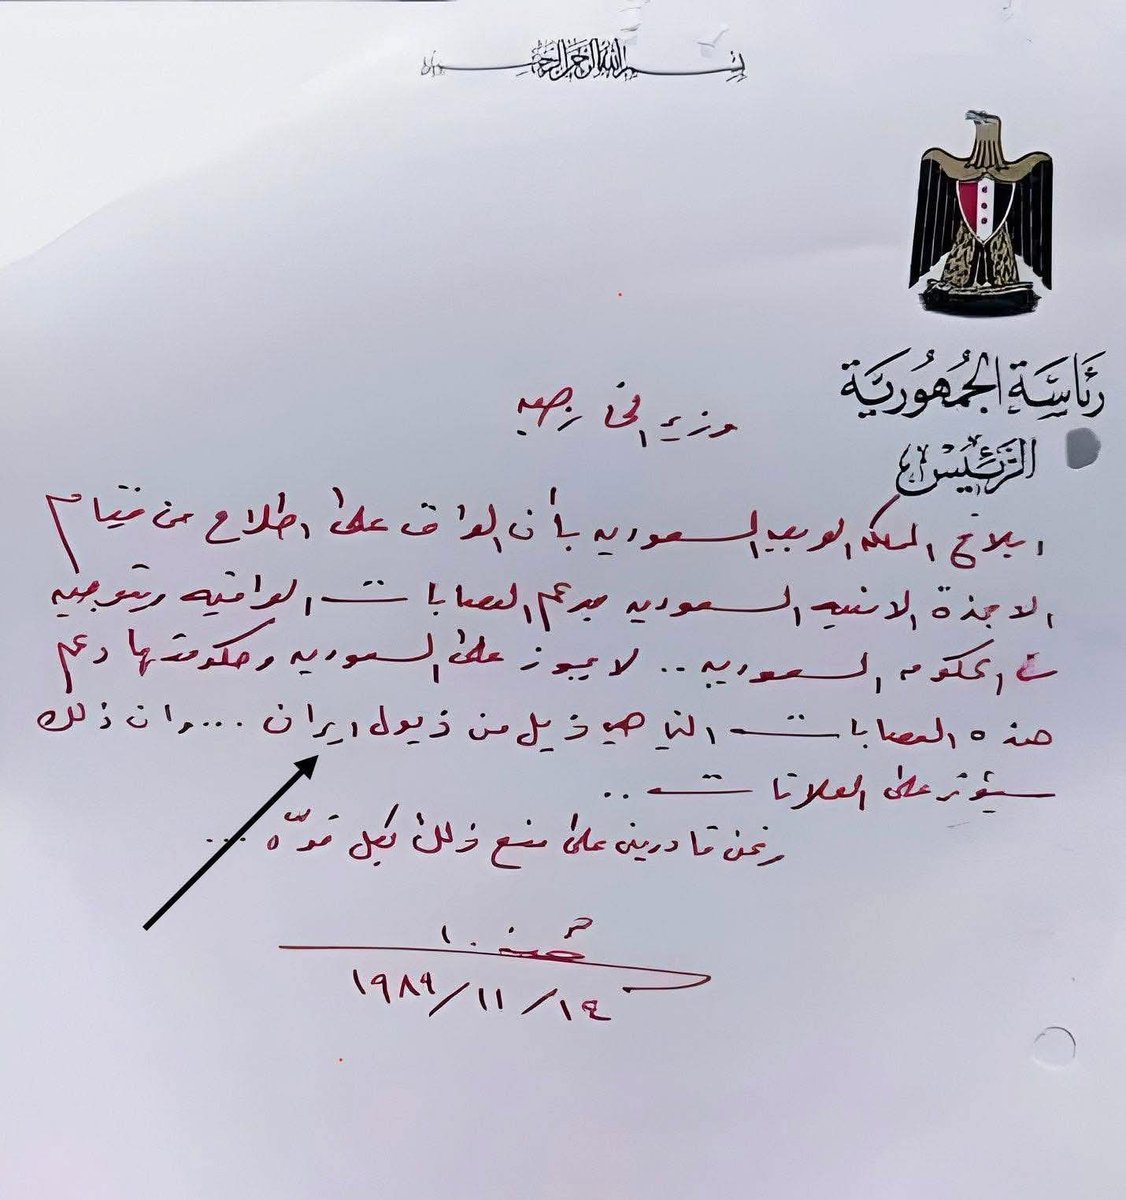 بسم الله الرحمن الرحيم
رئاسة الجمهورية
الرئيس
وزير الخارجيه
ابلاغ المملكه العربيه السعوديه بأن العراق على اطلاع عن قيام
الاجهزة الامنيه السعوديه بدعم العصابات العراقيه وبتوجيه
من الحكومه السعوديه .. لا يجوز على السعوديه وحكومتها دعم
هذه العصابات التي هي ذيل من ذيول ايران .... وان ذلك
سيؤثر على العلاقات ..
ونحن قادرين على منع ذلك بكل قوّه ...
١٤/١١/١٩٨٩